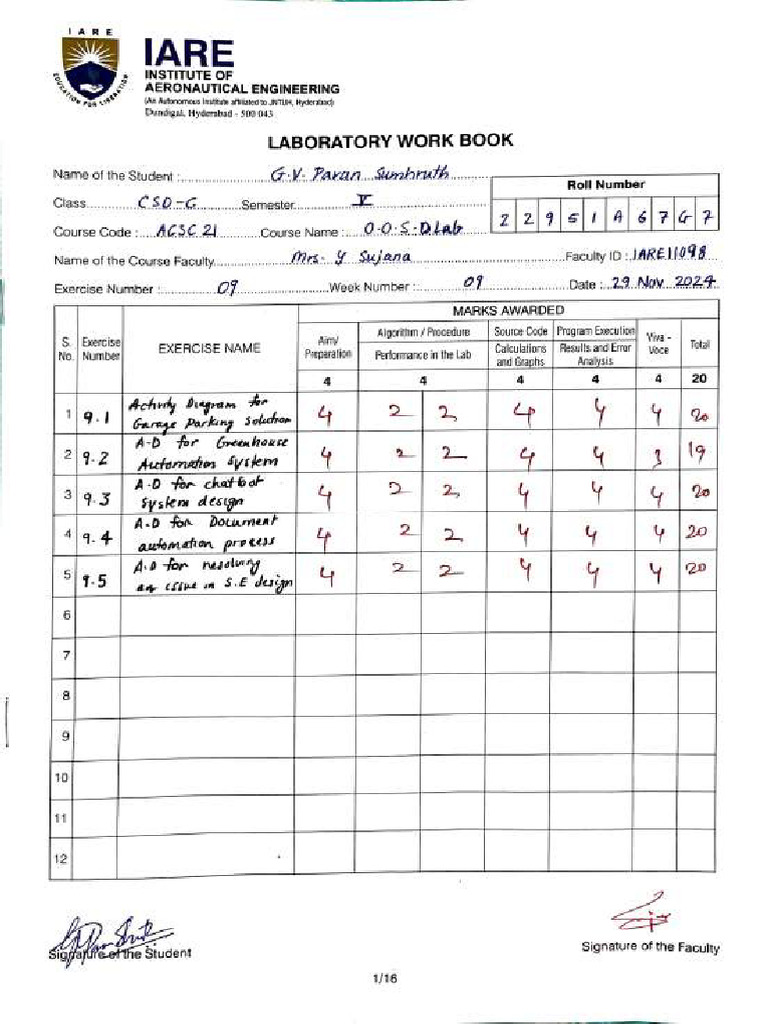 IARE
EDUCATION FOR LIBERATION
IARE
INSTITUTE OF
AERONAUTICAL ENGINEERING
(An Autonomous Institute affiliated to JNTUH, Hyderabad)
Dundigal, Hyderabad - 500 043
LABORATORY WORK BOOK
Name of the Student : G.V. Pavan Sumhruth
Roll Number
Class CSD-G Semester V
2 2 9 5 1 A 6 7 G 7
Course Code : ACSC21 Course Name : O.O.S.D Lab
Name of the Course Faculty Mrs. Y Sujana Faculty ID : IARE11098
Exercise Number : 09 Week Number : 09 Date : 29 Nov 2024
MARKS AWARDED
S. No. Exercise Number EXERCISE NAME Aim/ Preparation Algorithm / Procedure Source Code Program Execution Viva - Voce Total
Performance in the Lab Calculations and Graphs Results and Error Analysis
4 4 4 4 4 20
1 9.1 Activity Diagram for Garage Parking Solution 4 2 2 4 4 4 20
2 9.2 A-D for Greenhouse Automation System 4 2 2 4 4 3 19
3 9.3 A-D for chatbot system design 4 2 2 4 4 4 20
4 9.4 A-D for Document automation process 4 2 2 4 4 4 20
5 9.5 A.D for resolving an issue in S.E design 4 2 2 4 4 4 20
6
7
8
9
10
11
12
Signature of the Student Signature of the Faculty
1/16